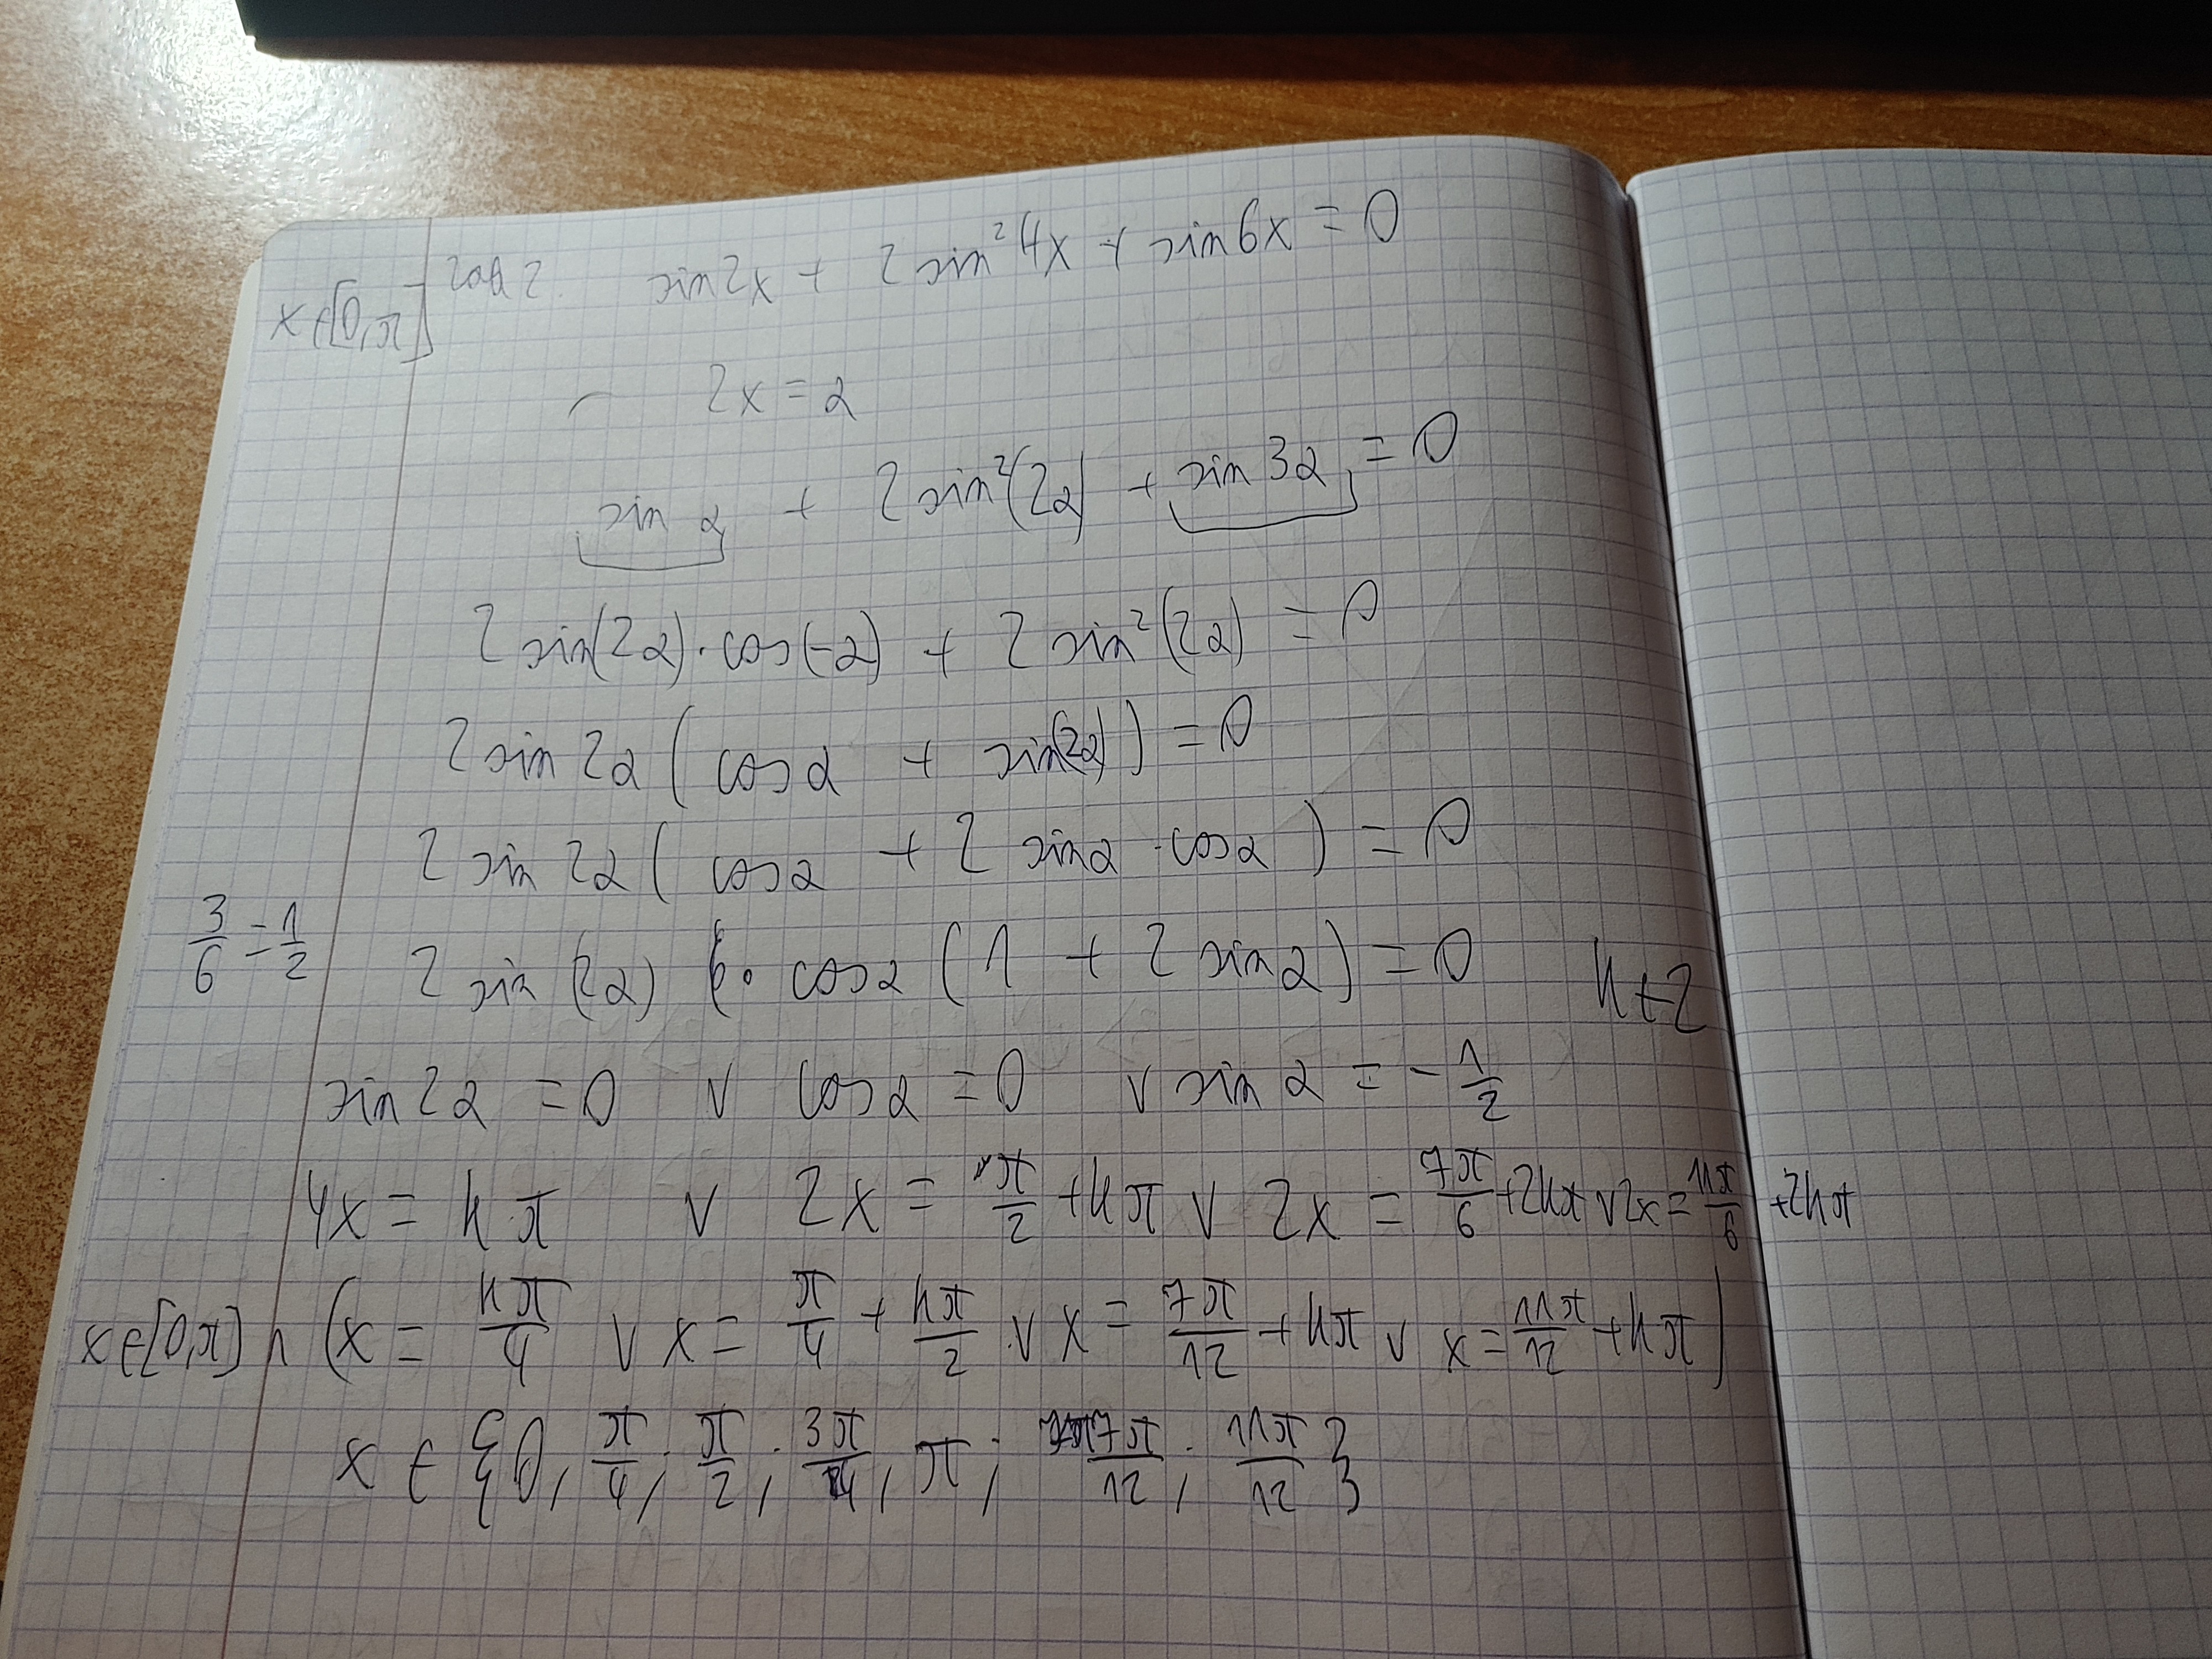 zad 2. sin2x + 2 sin²4x + sin6x = 0
x ∈ [0, π]
2x = α
sin α + 2 sin²(2α) + sin 3α = 0
2 sin(2α) · cos(-α) + 2 sin²(2α) = 0
2 sin 2α ( cos α + sin(2α) ) = 0
2 sin 2α ( cos α + 2 sin α · cos α ) = 0
3/6 = 1/2
2 sin (2α) · cos α ( 1 + 2 sin α ) = 0
k ∈ Z
sin 2α = 0 ∨ cos α = 0 ∨ sin α = - 1/2
4x = k · π ∨ 2x = π/2 + kπ ∨ 2x = 7π/6 + 2kπ ∨ 2x = 11π/6 + 2kπ
x ∈ [0, π] ∧ ( x = kπ/4 ∨ x = π/4 + kπ/2 ∨ x = 7π/12 + kπ ∨ x = 11π/12 + kπ )
x ∈ { 0, π/4; π/2; 3π/4, π; 7π/12; 11π/12 }